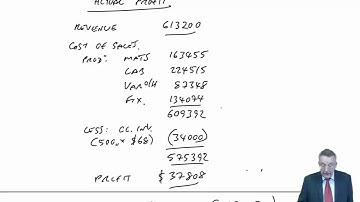 ACTUAL PROFIT
REVENUE 613200
COST OF SALES,
PRODN: MATS 163455
LAB 224515
VAR O/H 87348
FIX. 134074
609392
LESS: CL. INV. (34000)
(500 x $68)
575392
PROFIT $ 37808